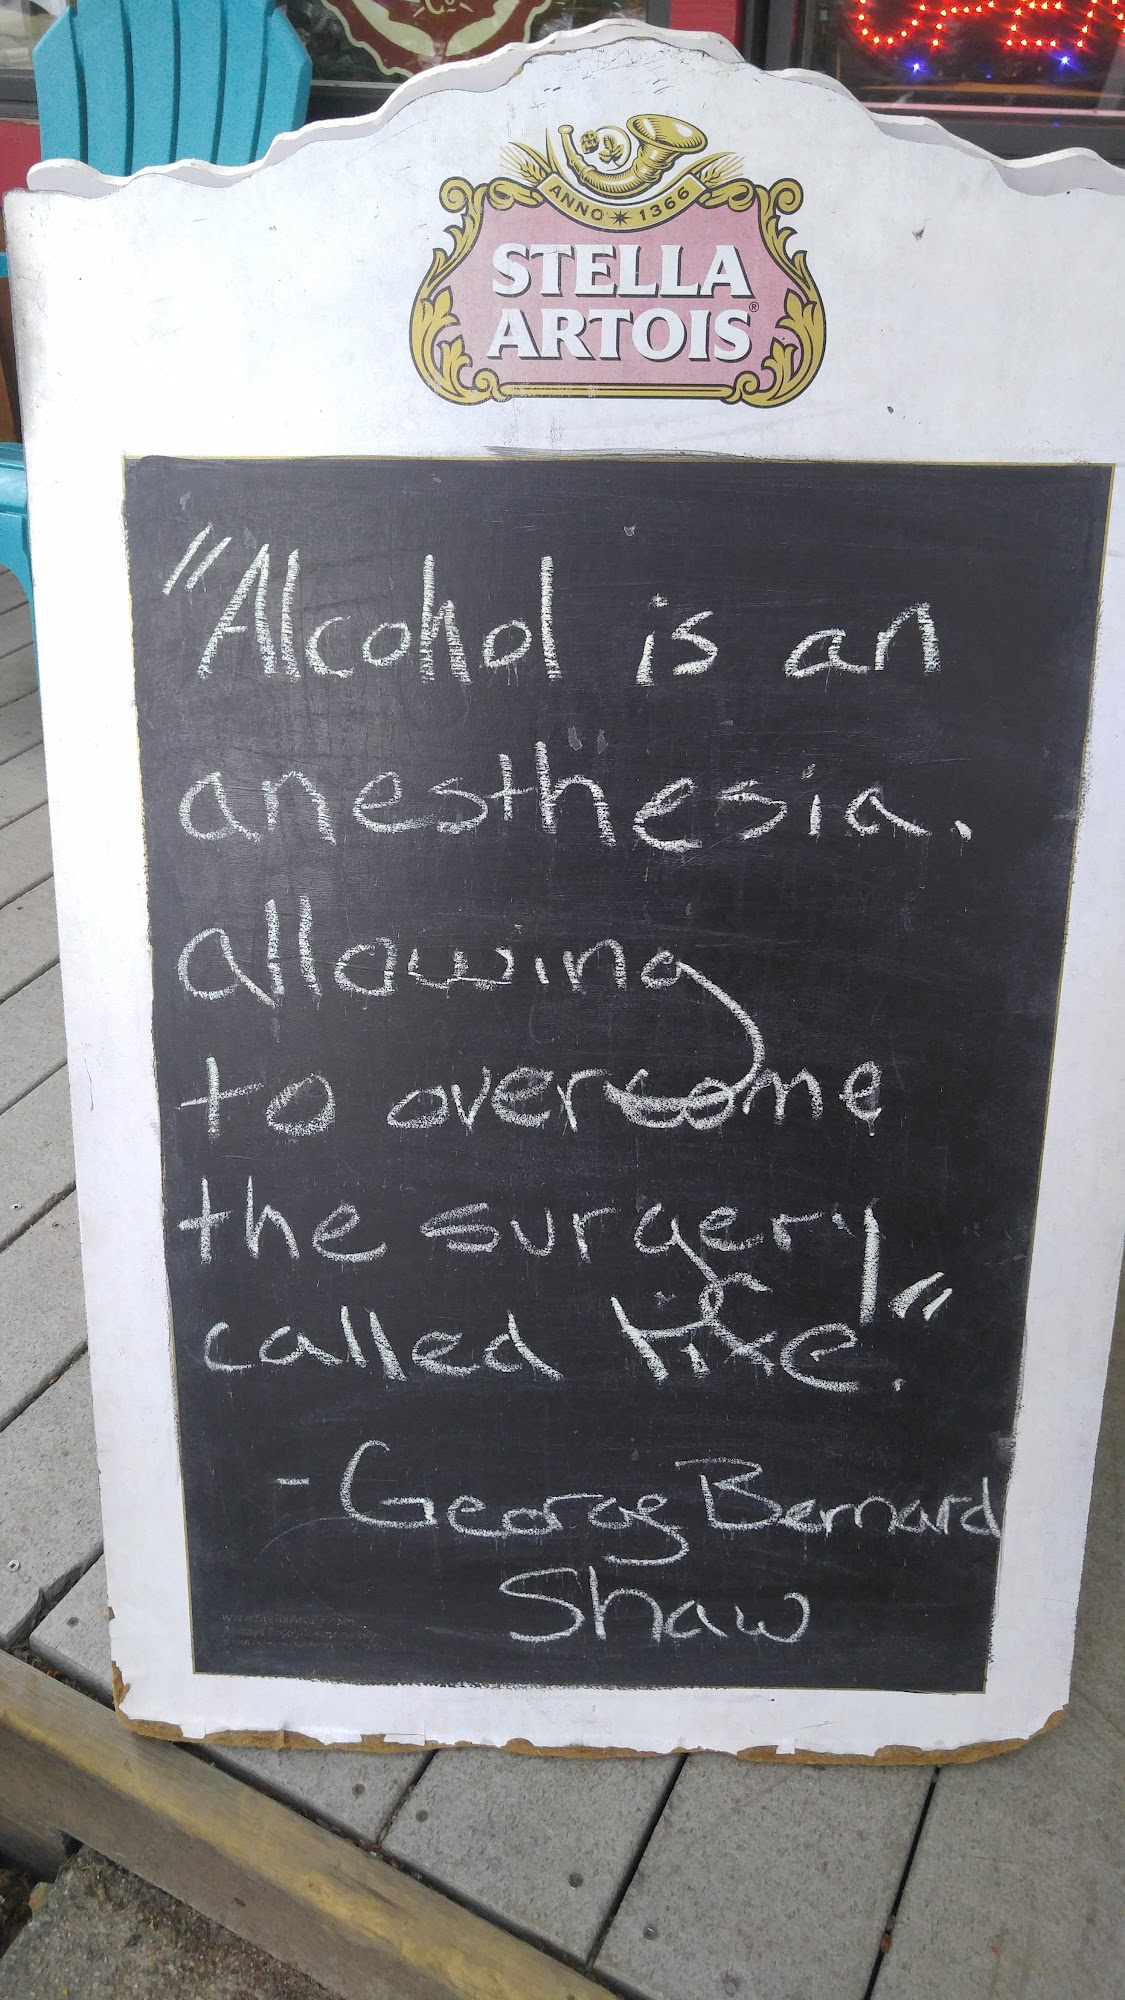 OPEN
Co
ANNO 1366
STELLA
ARTOIS®
"Alcohol is an
anesthesia,
allowing
to overcome
the surgery
called life."
- George Bernard
Shaw